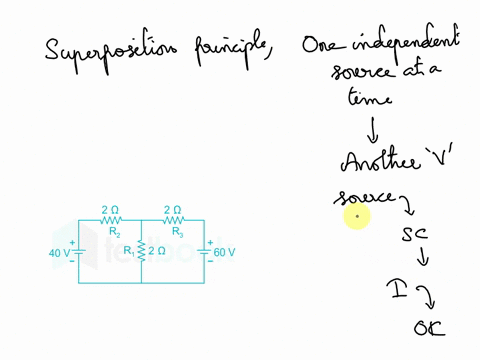 Superposition principle, One independent
source at a
time
Another 'V'
source
SC
I
OC
2 Ω 2 Ω
R2 R3
40 V + - R1 2 Ω + - 60 V